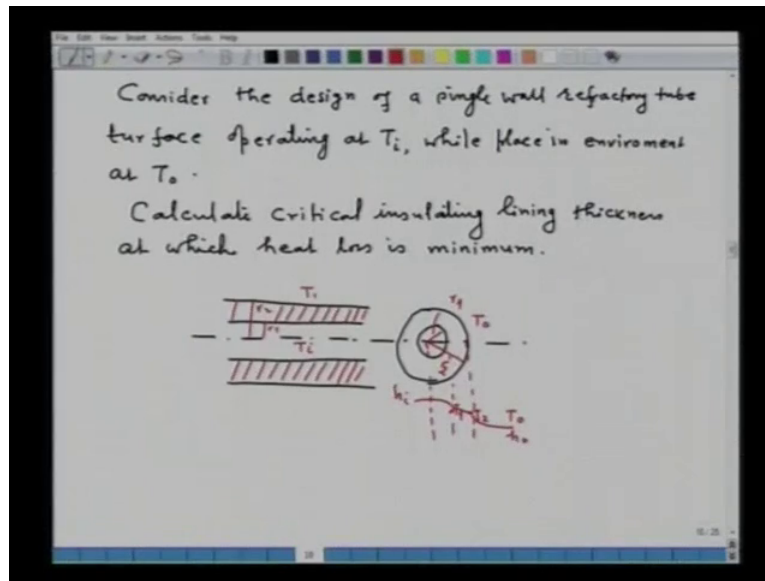 File Edit View Insert Actions Tools Help
Consider the design of a single wall refractory tube
furface operating at Ti, while place in enviroment
at To.
Calculate critical insulating lining thickness
at which heat loss is minimum.
T1
r2
r1
Ti
r1
To
hi
T1
T2
To
ho
18